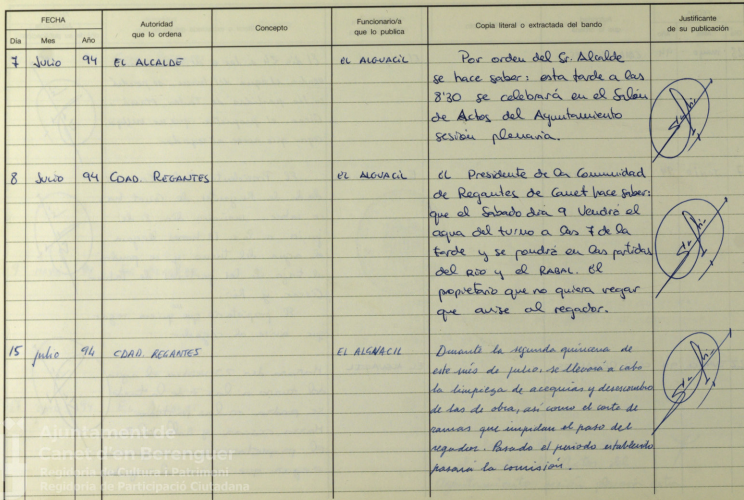 FECHA
Autoridad
que lo ordena
Concepto
Funcionario/a
que lo publica
Copia literal o extractada del bando
Justificante
de su publicación
Día Mes Año
7 Julio 94 EL ALCALDE EL ALGUACIL Por orden del Sr. Alcalde
se hace saber: esta tarde a las
8'30 se celebrará en el Salón
de Actos del Ayuntamiento
sesión plenaria.
8 Julio 94 CDAD. REGANTES EL ALGUACIL El Presidente de la Comunidad
de Regantes de Canet hace saber:
que el Sábado día 9 Vendrá el
agua del turno a las 7 de la
tarde y se pondrá en las partidas
del RIO y el RABAL. El
propietario que no quiera regar
que avise al regador.
15 julio 94 CDAD. REGANTES EL ALGUACIL Durante la segunda quincena de
este mes de julio, se llevará a cabo
la limpieza de acequias y desescombro
de las de obra, así como el corte de
ramas que impidan el paso del
regador. Pasado el periodo establecido
pasará la comisión.
Ajuntament de
Canet d'en Berenguer
Regidoria de Cultura i Patrimoni
Regidoria de Participació Ciutadana